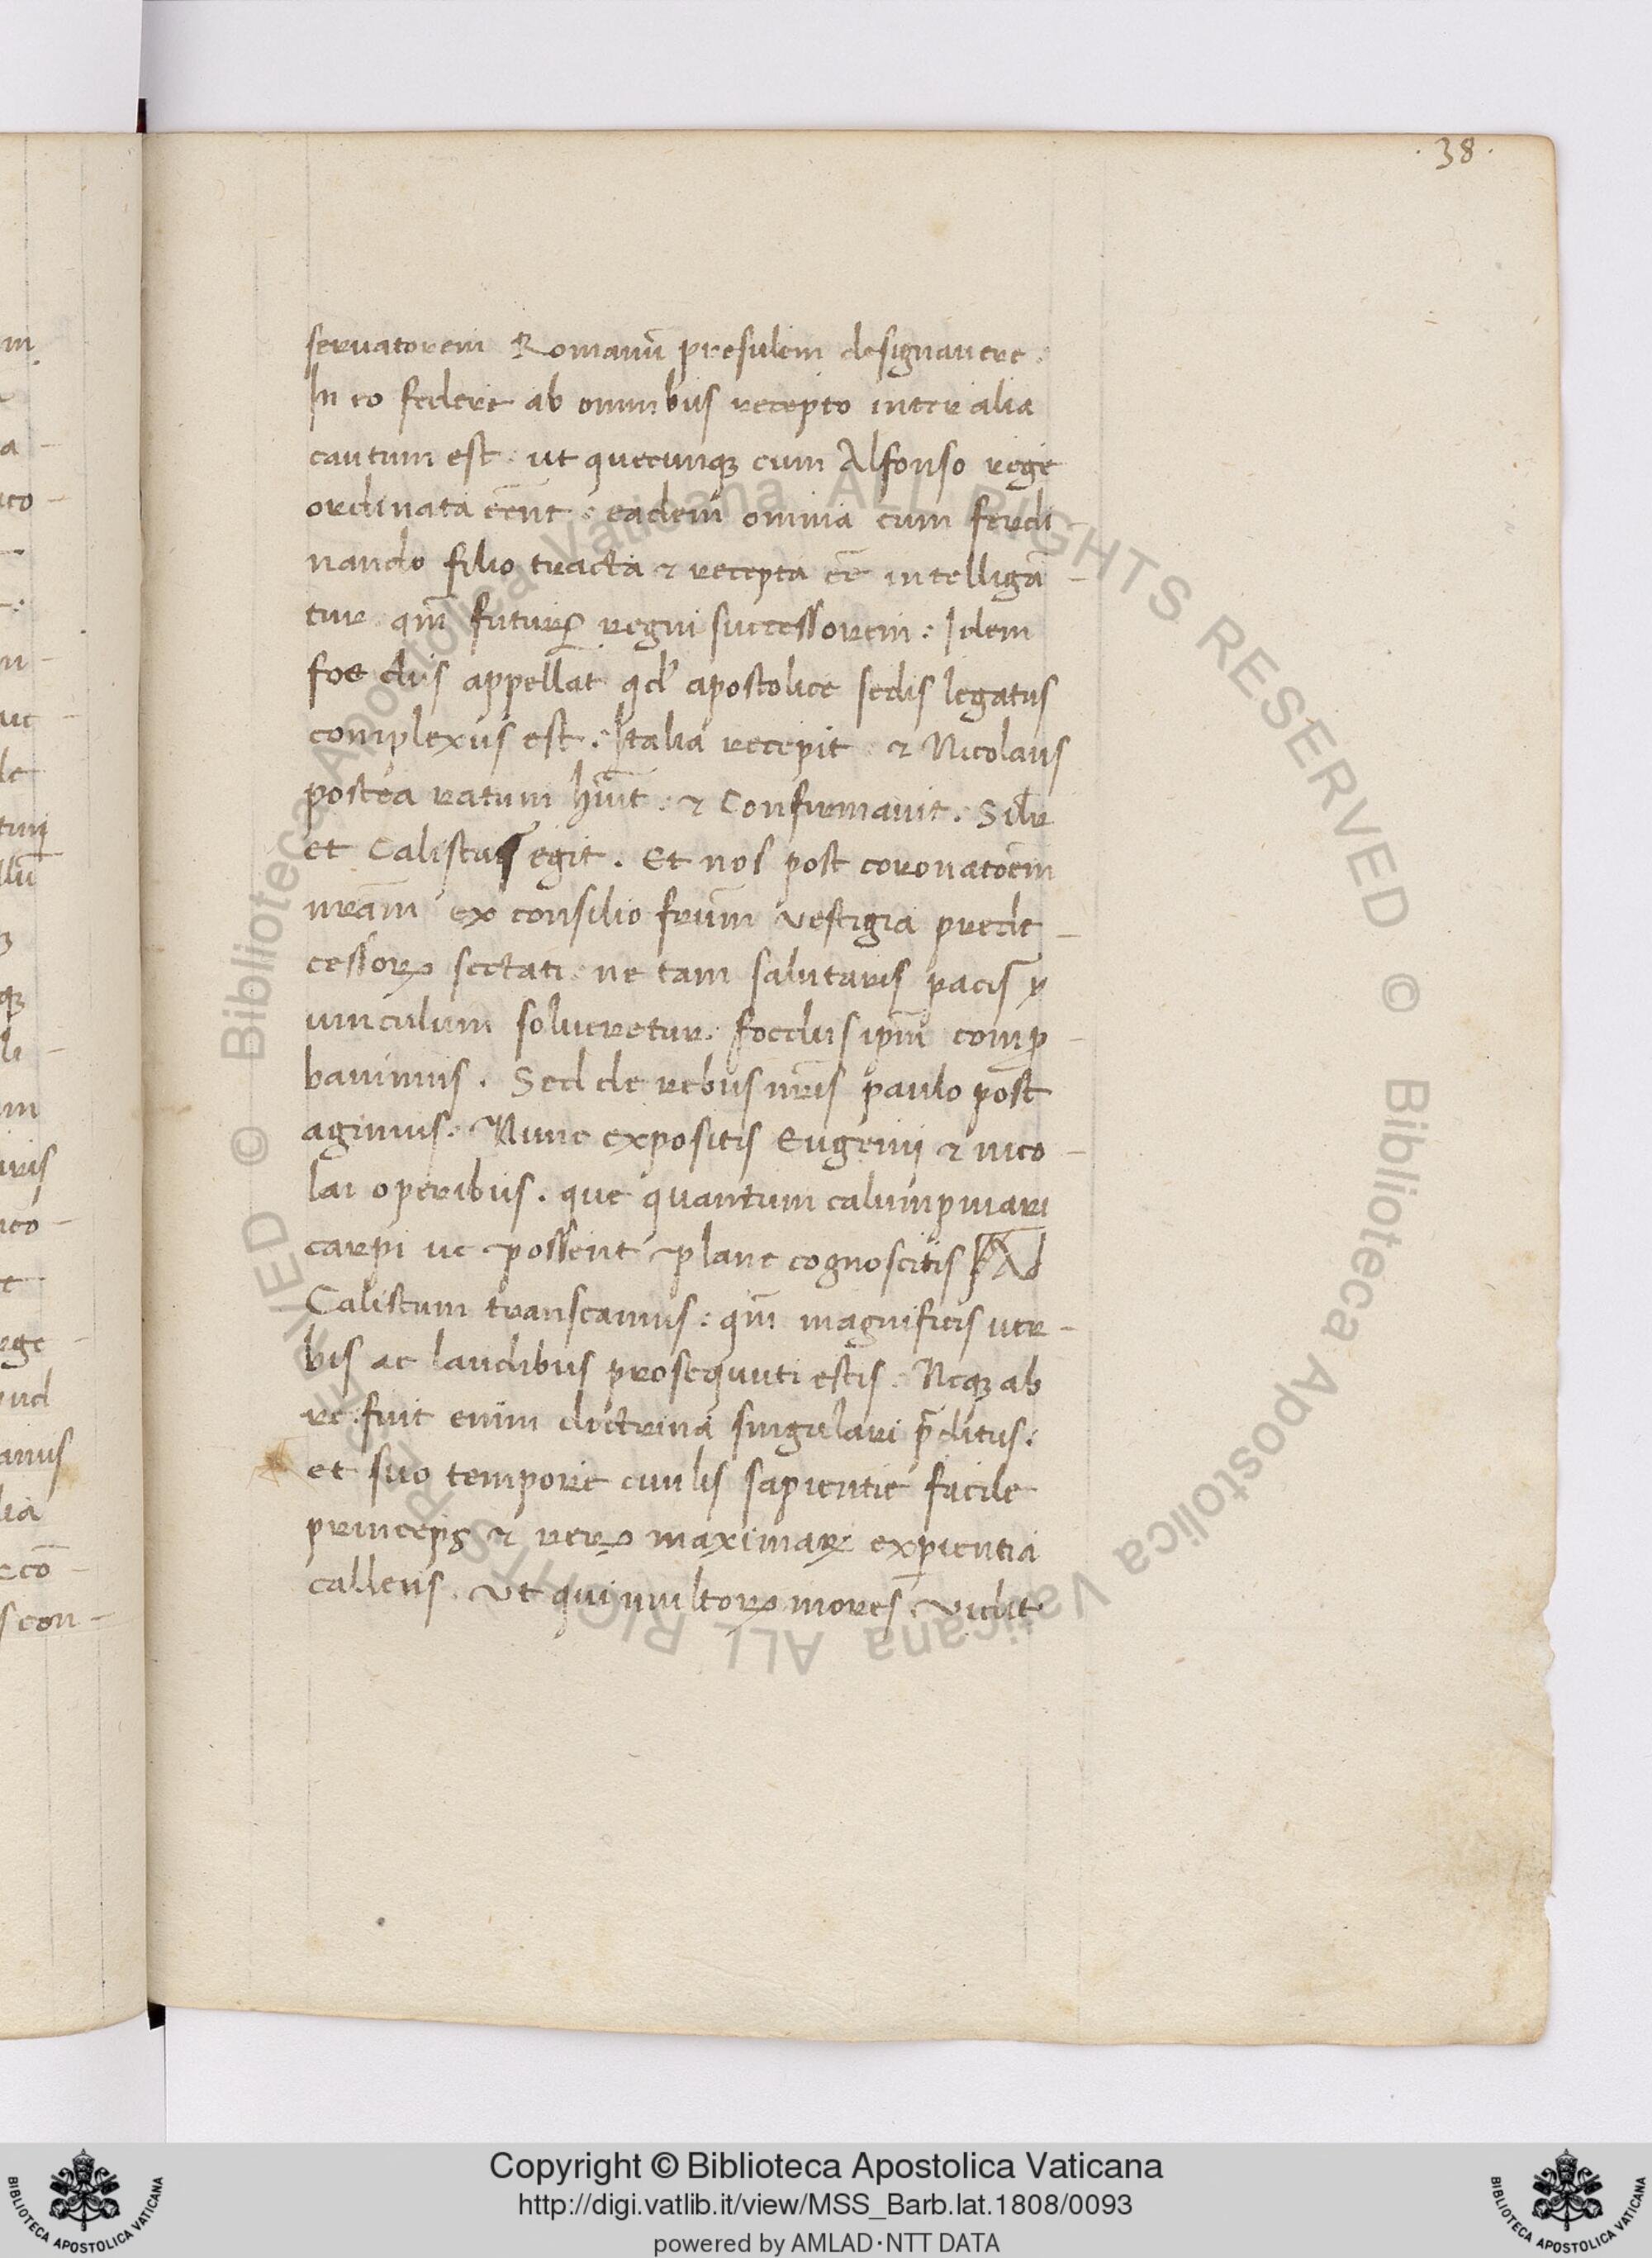 .38.
seruatorem Romanũ presulem designauere.
In eo federe ab omnibus recepto inter alia
cautum est. ut quecunqꝫ cum Alfonso rege
ordinata eẽnt. eadem omnia cum ferdi-
nando filio tracta ⁊ recepta eẽ intelligã-
tur. qm̃ futurũ regni successorem: Idem
foedus appellat qd̓ apostolice sedis legatus
complexus est. Italia recepit ⁊ Nicolaus
postea ratum hĩuit. ⁊ Confirmauit. Silr̃
et Calistus egit. Et nos post coronatõem
nr̃am ex consilio fr̃um vestigia prede-
cessoꝝ sectati. ne tam salutaris pacis
uinculum solueretur. foedus ip̃m comꝓ-
bauimus. Sed de rebus nr̃is paulo post
agimus. Nunc expositis Eugenij ⁊ nico-
lai operibus. que quantum calumpniari
carpi ue possent plane cognoscitis Ad
Calistum transeamus: qm̃ magnificis uer-
bis ac laudibus prosequuti estis. Neqꝫ ab
re. fuit enim doctrina singulari p̃ditus:
et suo tempore ciuilis sapientie facile
princeps ⁊ reꝝ maximaꝝ exꝑientia
callens. Ut qui multoꝝ mores vidit
Copyright © Biblioteca Apostolica Vaticana
http://digi.vatlib.it/view/MSS_Barb.lat.1808/0093
powered by AMLAD·NTT DATA
BIBLIOTECA APOSTOLICA VATICANA
BIBLIOTECA APOSTOLICA VATICANA
© Biblioteca Apostolica Vaticana ALL RIGHTS RESERVED © Biblioteca Apostolica Vaticana ALL RIGHTS RESERVED